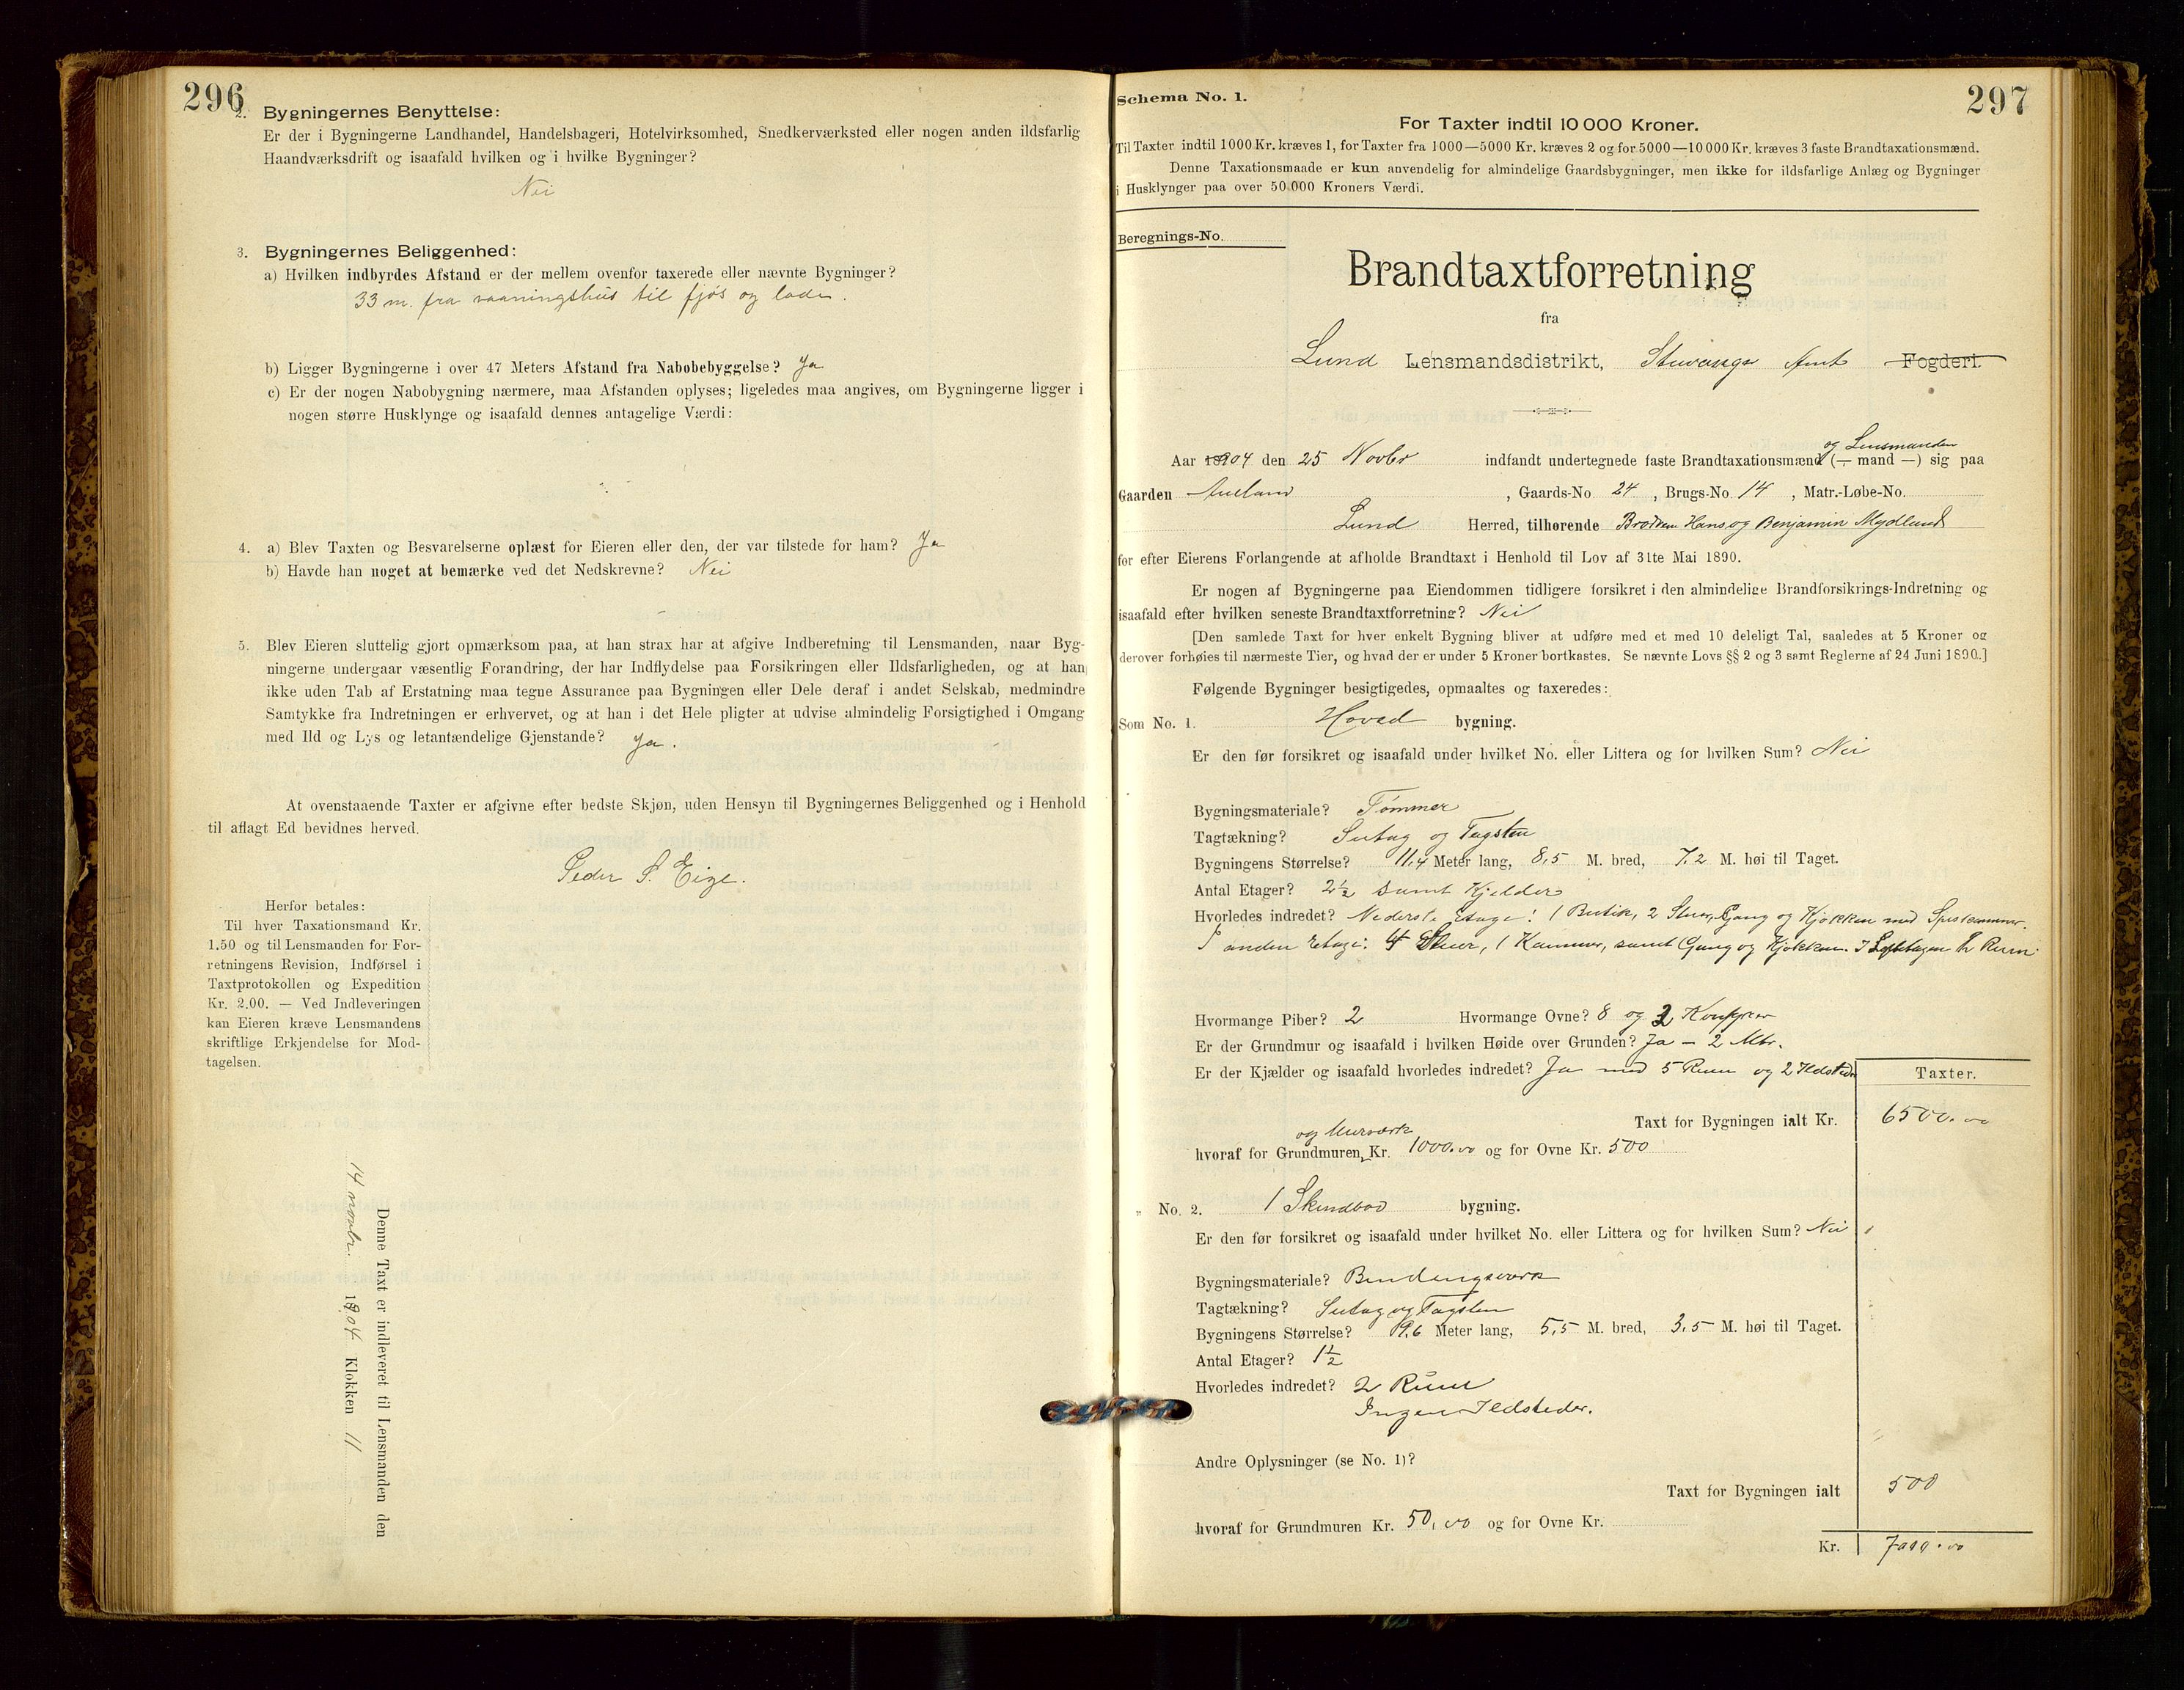 296
2. Bygningernes Benyttelse:
Er der i Bygningerne Landhandel, Handelsbageri, Hotelvirksomhed, Snedkerværksted eller nogen anden ildsfarlig
Haandværksdrift og isaafald hvilken og i hvilke Bygninger?
Nei
3. Bygningernes Beliggenhed:
a) Hvilken indbyrdes Afstand er der mellem ovenfor taxerede eller nævnte Bygninger?
33 m. fra vaaningshus til fjøs og lade.
b) Ligger Bygningerne i over 47 Meters Afstand fra Nabobebyggelse? Ja
c) Er der nogen Nabobygning nærmere, maa Afstanden oplyses; ligeledes maa angives, om Bygningerne ligger i
nogen større Husklynge og isaafald dennes antagelige Værdi:
4. a) Blev Taxten og Besvarelserne oplæst for Eieren eller den, der var tilstede for ham? Ja
b) Havde han noget at bemærke ved det Nedskrevne? Nei
5. Blev Eieren sluttelig gjort opmærksom paa, at han strax har at afgive Indberetning til Lensmanden, naar Byg-
ningerne undergaar væsentlig Forandring, der har Indflydelse paa Forsikringen eller Ildsfarligheden, og at han
ikke uden Tab af Erstatning maa tegne Assurance paa Bygningen eller Dele deraf i andet Selskab, medmindre
Samtykke fra Indretningen er erhvervet, og at han i det Hele pligter at udvise almindelig Forsigtighed i Omgang
med Ild og Lys og letantændelige Gjenstande? Ja.
At ovenstaaende Taxter er afgivne efter bedste Skjøn, uden Hensyn til Bygningernes Beliggenhed og i Henhold
til aflagt Ed bevidnes herved.
Peder S. Eige.
Herfor betales:
Til hver Taxationsmand Kr.
1.50 og til Lensmanden for For-
retningens Revision, Indførsel i
Taxtprotokollen og Expedition
Kr. 2.00. — Ved Indleveringen
kan Eieren kræve Lensmandens
skriftlige Erkjendelse for Mod-
tagelsen.
Denne Taxt er indleveret til Lensmanden den
14 novbr. 1904 Klokken 11
297
Schema No. 1.
For Taxter indtil 10 000 Kroner.
Til Taxter indtil 1000 Kr. kræves 1, for Taxter fra 1000—5000 Kr. kræves 2 og for 5000—10 000 Kr. kræves 3 faste Brandtaxationsmænd.
Denne Taxationsmaade er kun anvendelig for almindelige Gaardsbygninger, men ikke for ildsfarlige Anlæg og Bygninger
i Husklynger paa over 50.000 Kroners Værdi.
Beregnings-No.
Brandtaxtforretning
fra
Lund Lensmandsdistrikt, Stavanger Amt Fogderi.
og Lensmanden
Aar 1904 den 25 Novbr indfandt undertegnede faste Brandtaxationsmænd (— mand —) sig paa
Gaarden , Gaards-No. 24, Brugs-No. 14, Matr.-Løbe-No.
Lund Herred, tilhørende Brødrene Hans og Benjamin Mydland
for efter Eierens Forlangende at afholde Brandtaxt i Henhold til Lov af 31te Mai 1890.
Er nogen af Bygningerne paa Eiendommen tidligere forsikret i den almindelige Brandforsikrings-Indretning og
isaafald efter hvilken seneste Brandtaxtforretning? Nei
[Den samlede Taxt for hver enkelt Bygning bliver at udføre med et med 10 deleligt Tal, saaledes at 5 Kroner og
derover forhøies til nærmeste Tier, og hvad der er under 5 Kroner bortkastes. Se nævnte Lovs §§ 2 og 3 samt Reglerne af 24 Juni 1890.]
Følgende Bygninger besigtigedes, opmaaltes og taxeredes:
Som No. 1. Hoved bygning.
Er den før forsikret og isaafald under hvilket No. eller Littera og for hvilken Sum? Nei
Bygningsmateriale? Tømmer
Tagtækning? Sutag og Tagsten
Bygningens Størrelse? 11,4 Meter lang, 8,5 M. bred, 7.2 M. høi til Taget.
Antal Etager? 2½ samt Kjelder
Hvorledes indredet? Nederste etage: 1 Butik, 2 Stuer, Gang og Kjøkken med Spiskammer.
I anden etage: 4 Stuer, 1 Kammer, samt Gang og Kjøkken. I Rum
Hvormange Piber? 2 Hvormange Ovne? 8 og 2 Komfyrer
Er der Grundmur og isaafald i hvilken Høide over Grunden? Ja — 2 Mtr.
Er der Kjælder og isaafald hvorledes indredet? Ja med 5 Rum og 2 Ildsteder
Taxter.
Taxt for Bygningen ialt Kr. 6500.00
og Murværk
hvoraf for Grundmuren Kr. 1000.00 og for Ovne Kr. 500
„ No. 2. 1 Skindbod bygning.
Er den før forsikret og isaafald under hvilket No. eller Littera og for hvilken Sum? Nei
Bygningsmateriale? Bindingsværk
Tagtækning? Sutag og Tagsten
Bygningens Størrelse? 9.6 Meter lang, 5,5 M. bred, 3,5 M. høi til Taget.
Antal Etager? 1½
Hvorledes indredet? 2 Rum
Ingen Ildsteder.
Andre Oplysninger (se No. 1)?
Taxt for Bygningen ialt 500
hvoraf for Grundmuren Kr. 50,00 og for Ovne Kr.
Kr. 7000.00